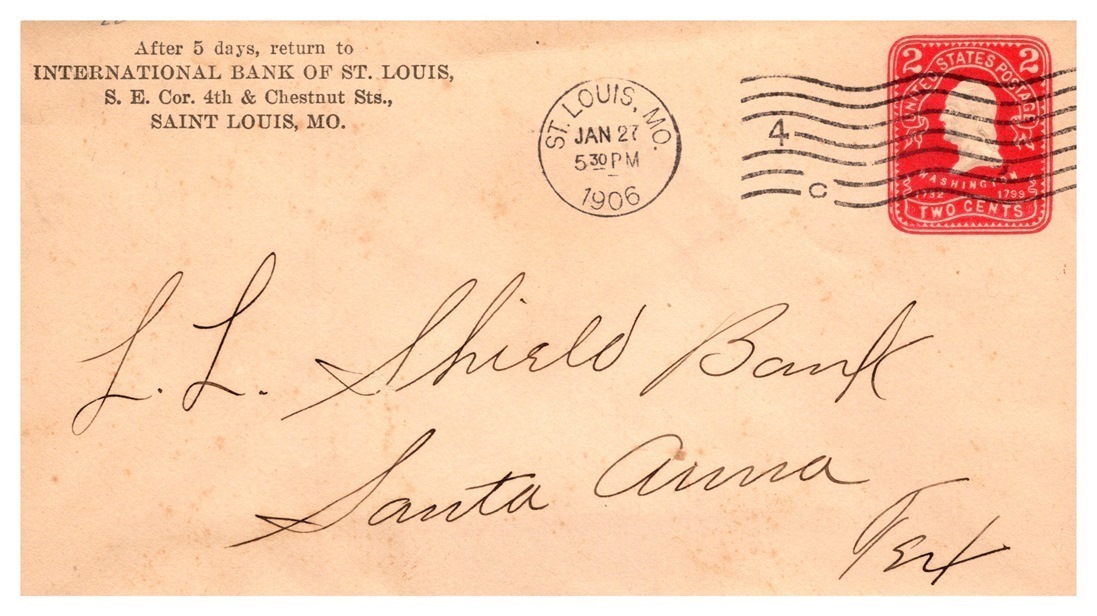 After 5 days, return to
INTERNATIONAL BANK OF ST. LOUIS,
S. E. Cor. 4th & Chestnut Sts.,
SAINT LOUIS, MO.
ST. LOUIS, MO.
JAN 27
5 30 PM
1906
4
C
2 2
UNITED STATES POSTAGE
WASHINGTON
1732 1799
TWO CENTS
L. L. Shield Bank
Santa Anna
Tex